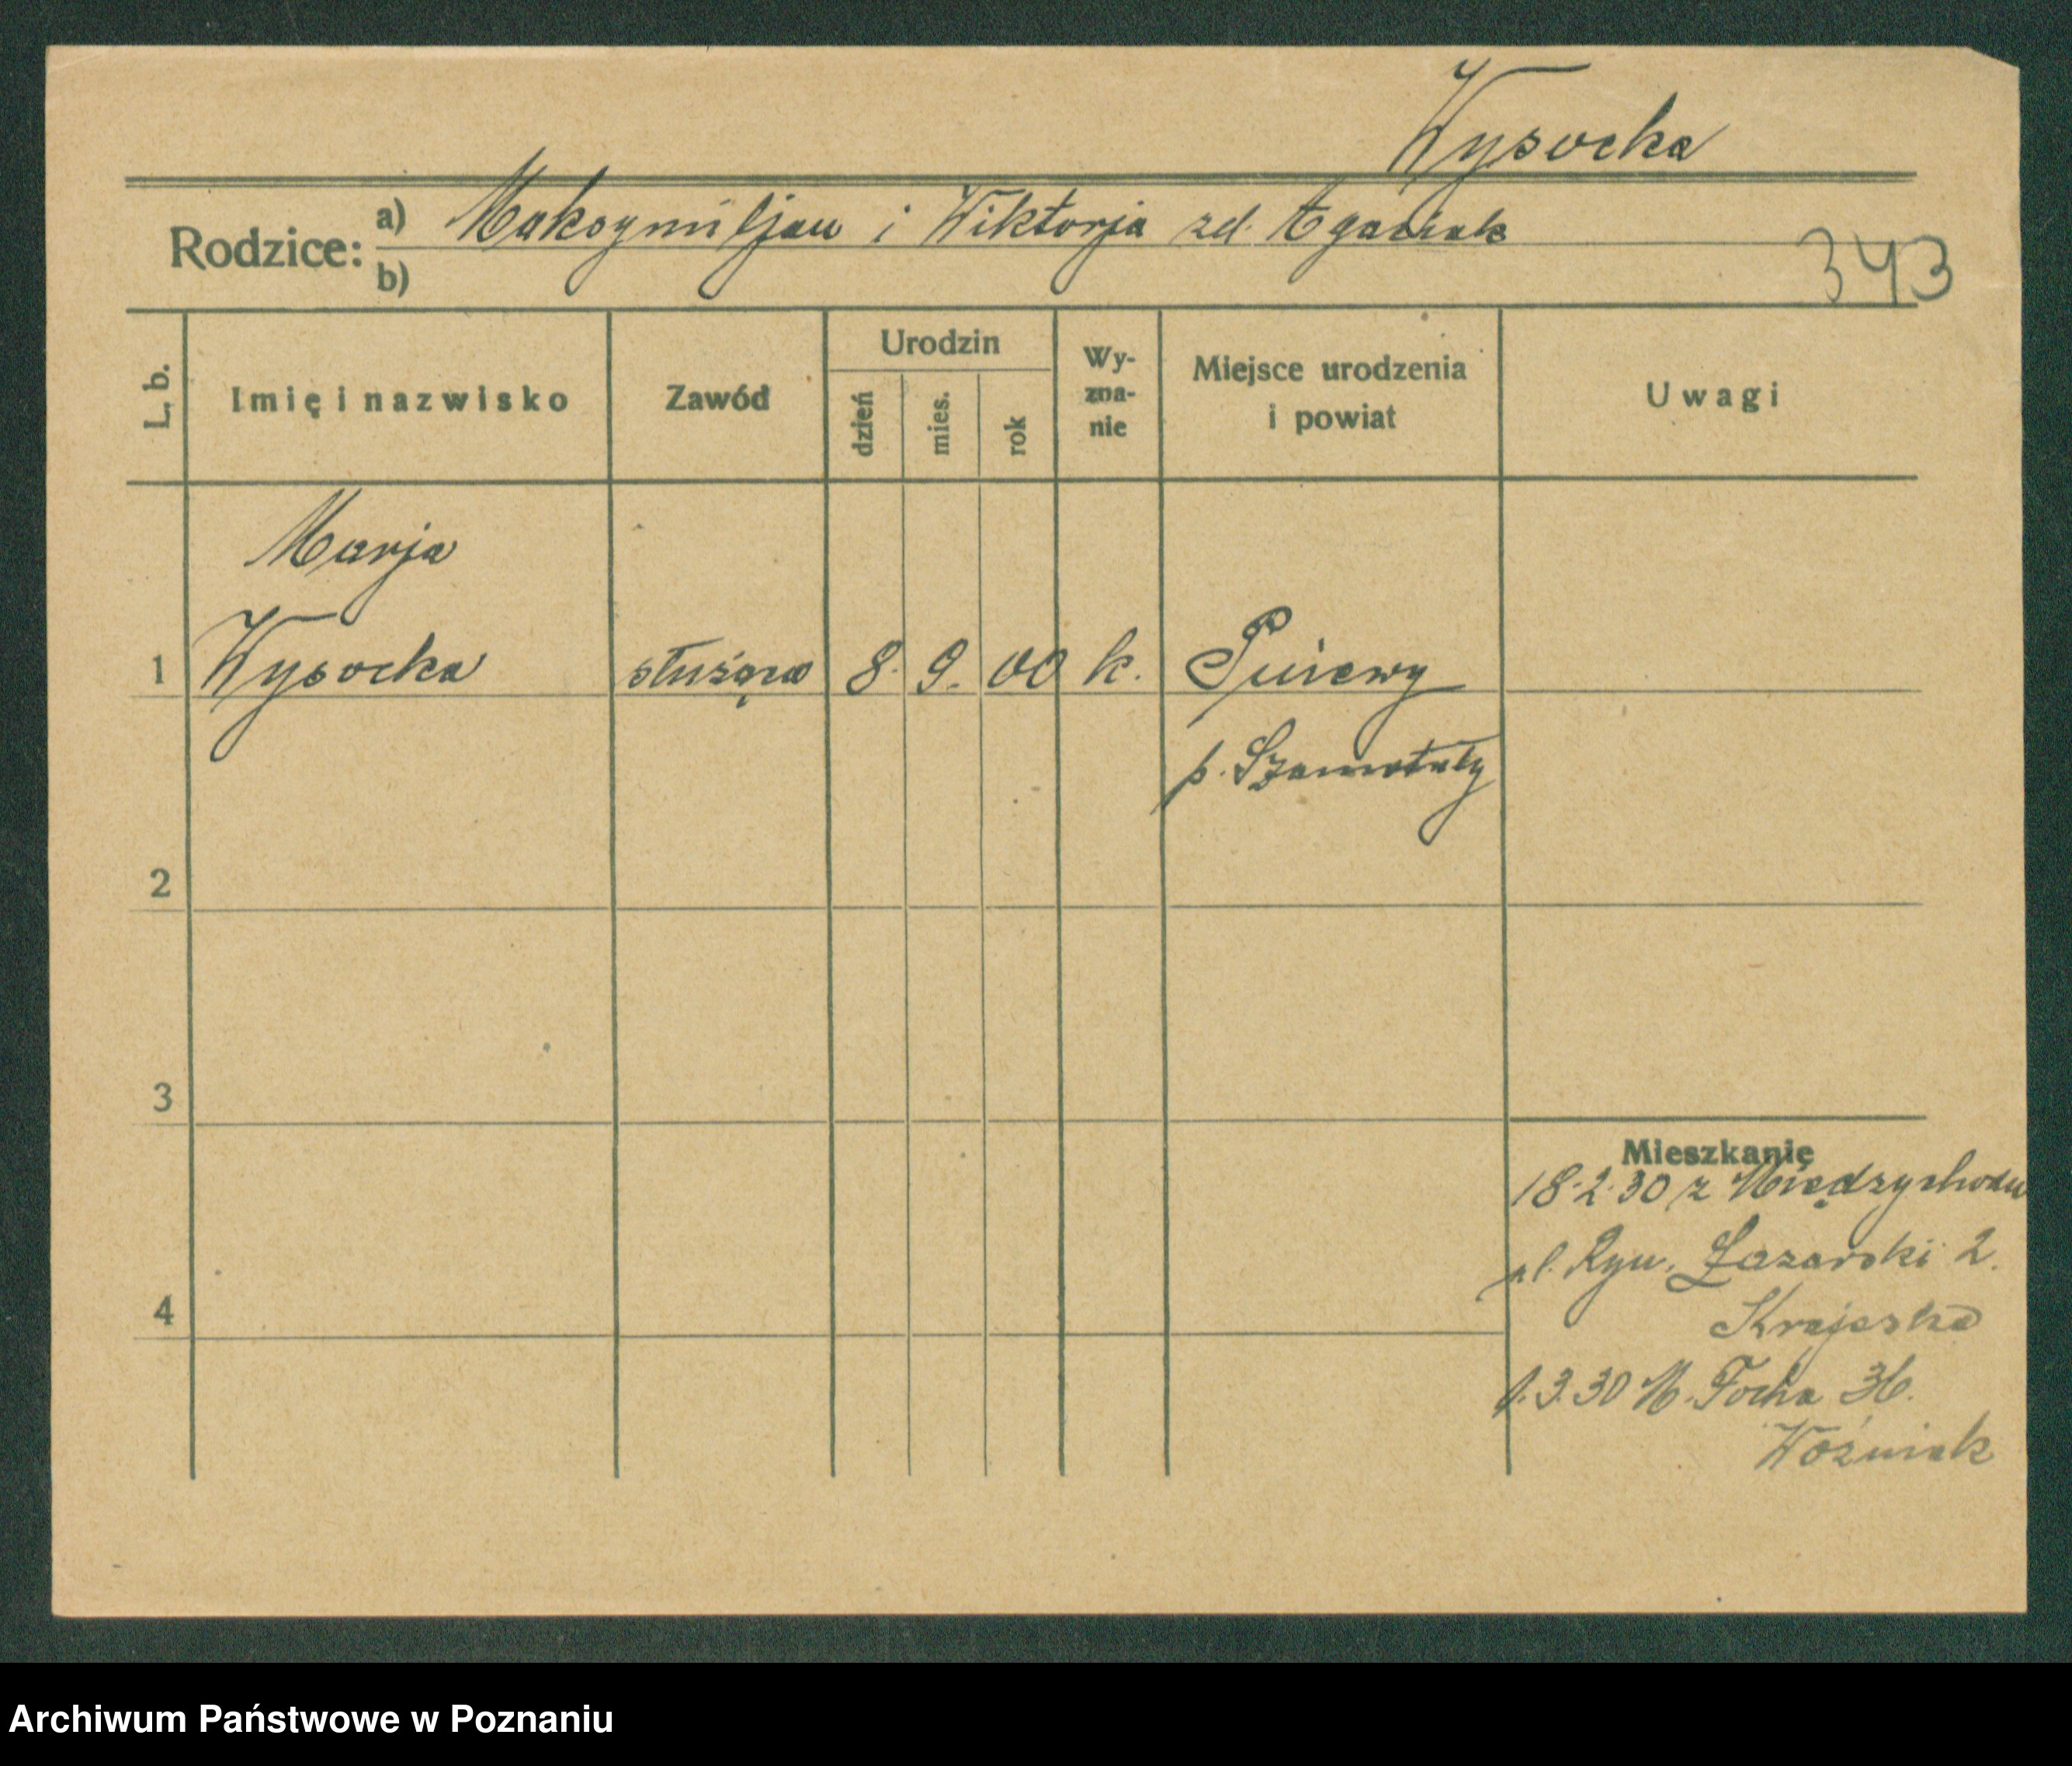 Wysocka
Rodzice: a) Maksymiljan i Wiktorja zd.
b)
343
L. b. Imię i nazwisko Zawód Urodzin dzień mies. rok Wy-zna-nie Miejsce urodzenia i powiat Uwagi
Marja
1 Wysocka służąca 8. 9. 00 k. Pniewy
p. Szamotuły
2
3
Mieszkanie
18.2.30 z Międzychodu
pl. Ryn. Łazarski 2.
4
Krajeska
1.3.30 M. Focha 36.
Woźniak
Archiwum Państwowe w Poznaniu